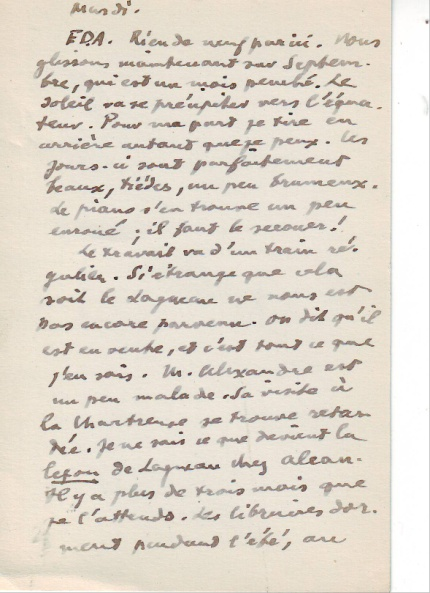 Mardi.
EDA. Rien de neuf par ici. Nous
glissons maintenant sur Septem-
bre, qui est un mois penché. Le
soleil va se précipiter vers l'équa-
teur. Pour ma part je tire en
arrière autant que je peux. Ces
jours-ci sont parfaitement
beaux, tièdes, un peu brumeux.
Le piano s'en trouve un peu
enroué ; il faut le secouer !
Le travail va d'un train ré-
gulier. Si étrange que cela
soit le Lagneau ne nous est
pas encore parvenu. On dit qu'il
est en vente, et c'est tout ce que
j'en sais. M. Alexandre est
un peu malade. Sa visite à
la Chartreuse se trouve retar-
dée. Je ne sais ce que devient la
leçon de Lagneau chez Alcan.
Il y a plus de trois mois que
je l'attends. Les libraires dor-
ment pendant l'été, au